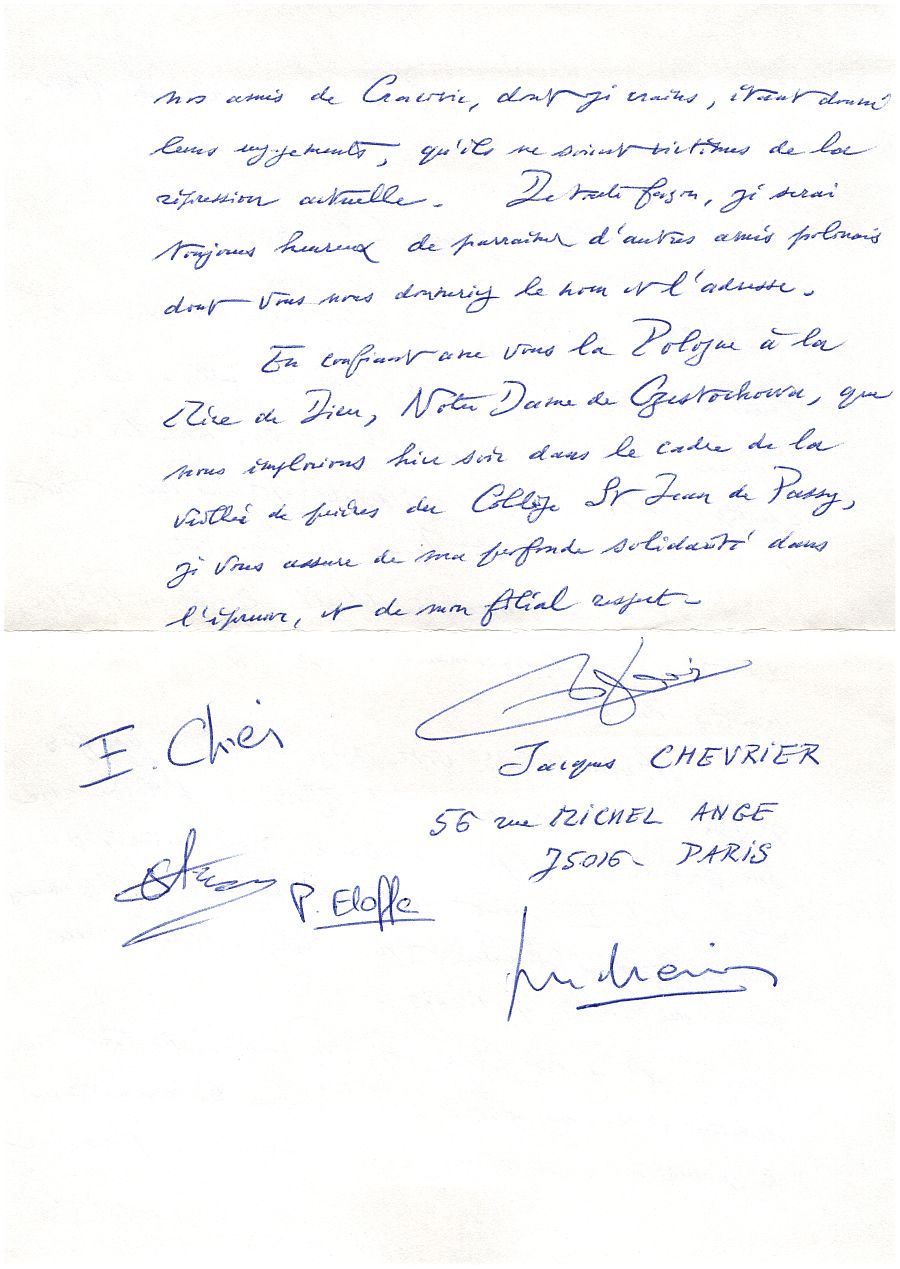 nos amis de Cracovie, dont je crains, étant donné
leurs engagements, qu'ils ne soient victimes de la
répression actuelle. De toute façon, je serai
toujours heureux de parrainer d'autres amis polonais
dont vous nous donneriez le nom et l'adresse.
En confiant avec vous la Pologne à la
Mère de Dieu, Notre Dame de Czestochowa, que
nous implorions hier soir dans le cadre de la
veillée de prières du Collège St Jean de Passy,
je vous assure de ma profonde solidarité dans
l'épreuve, et de mon filial respect.
Jacques CHEVRIER
56 rue MICHEL ANGE
75016 PARIS
P. Eloffe